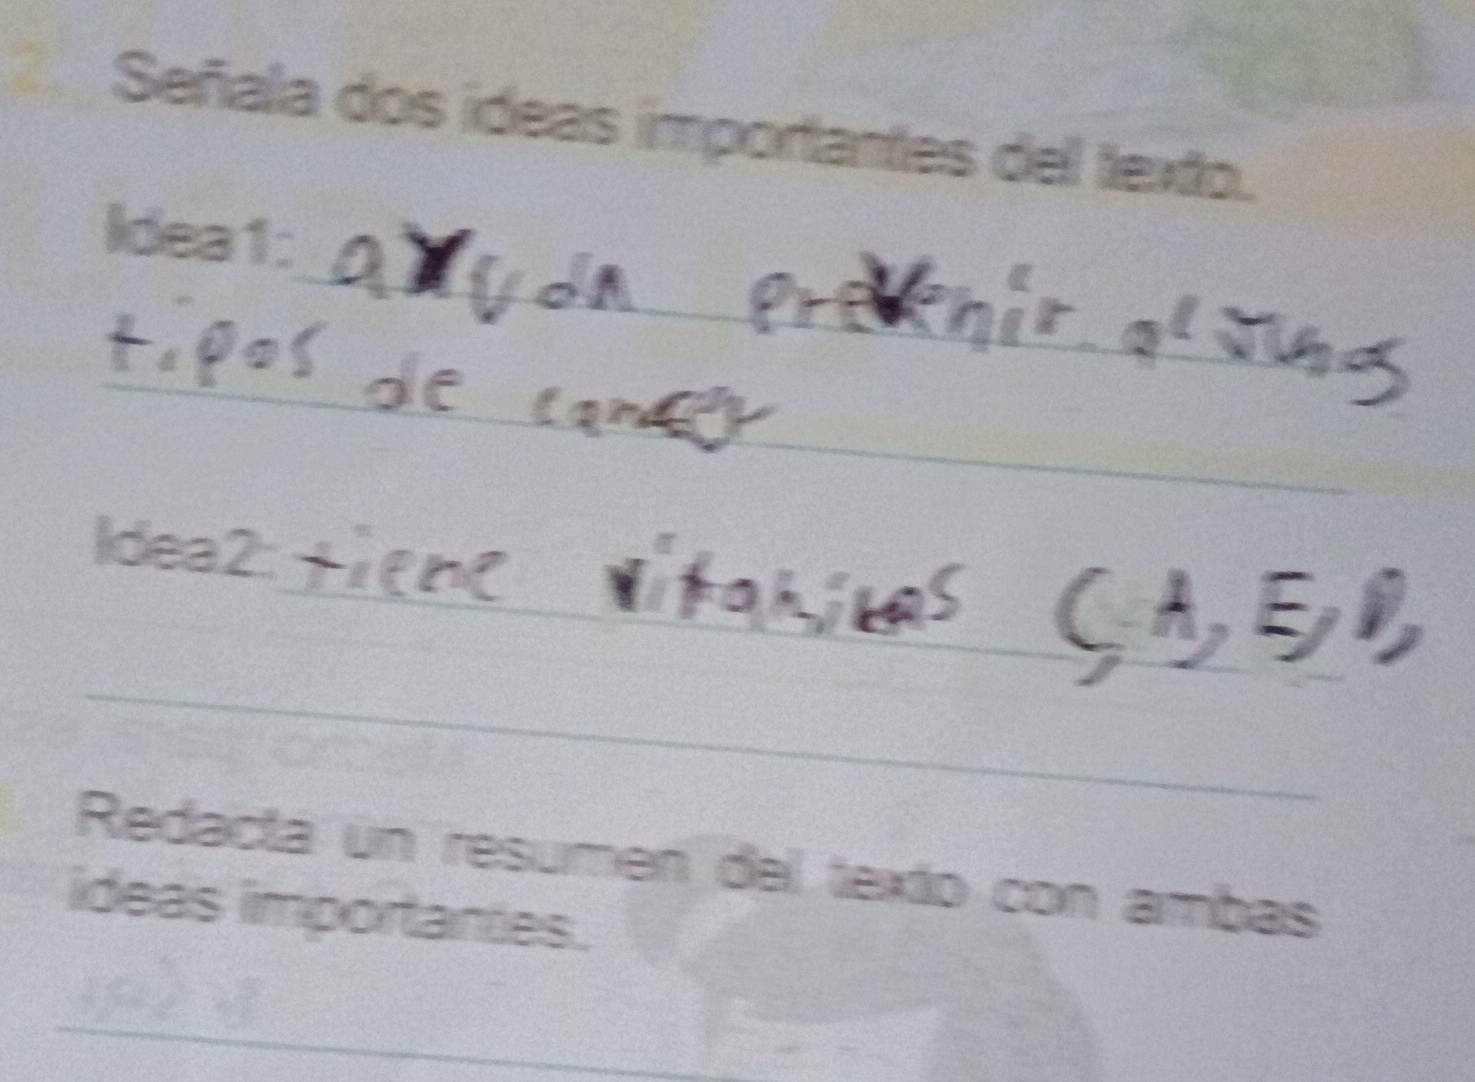 2. Señala dos ideas importantes del texto.
Idea1: ayuda prevenir algunos
tipos de cancer
Idea2: tiene vitaminas C, A, E, B,
Redacta un resumen del texto con ambas
ideas importantes.